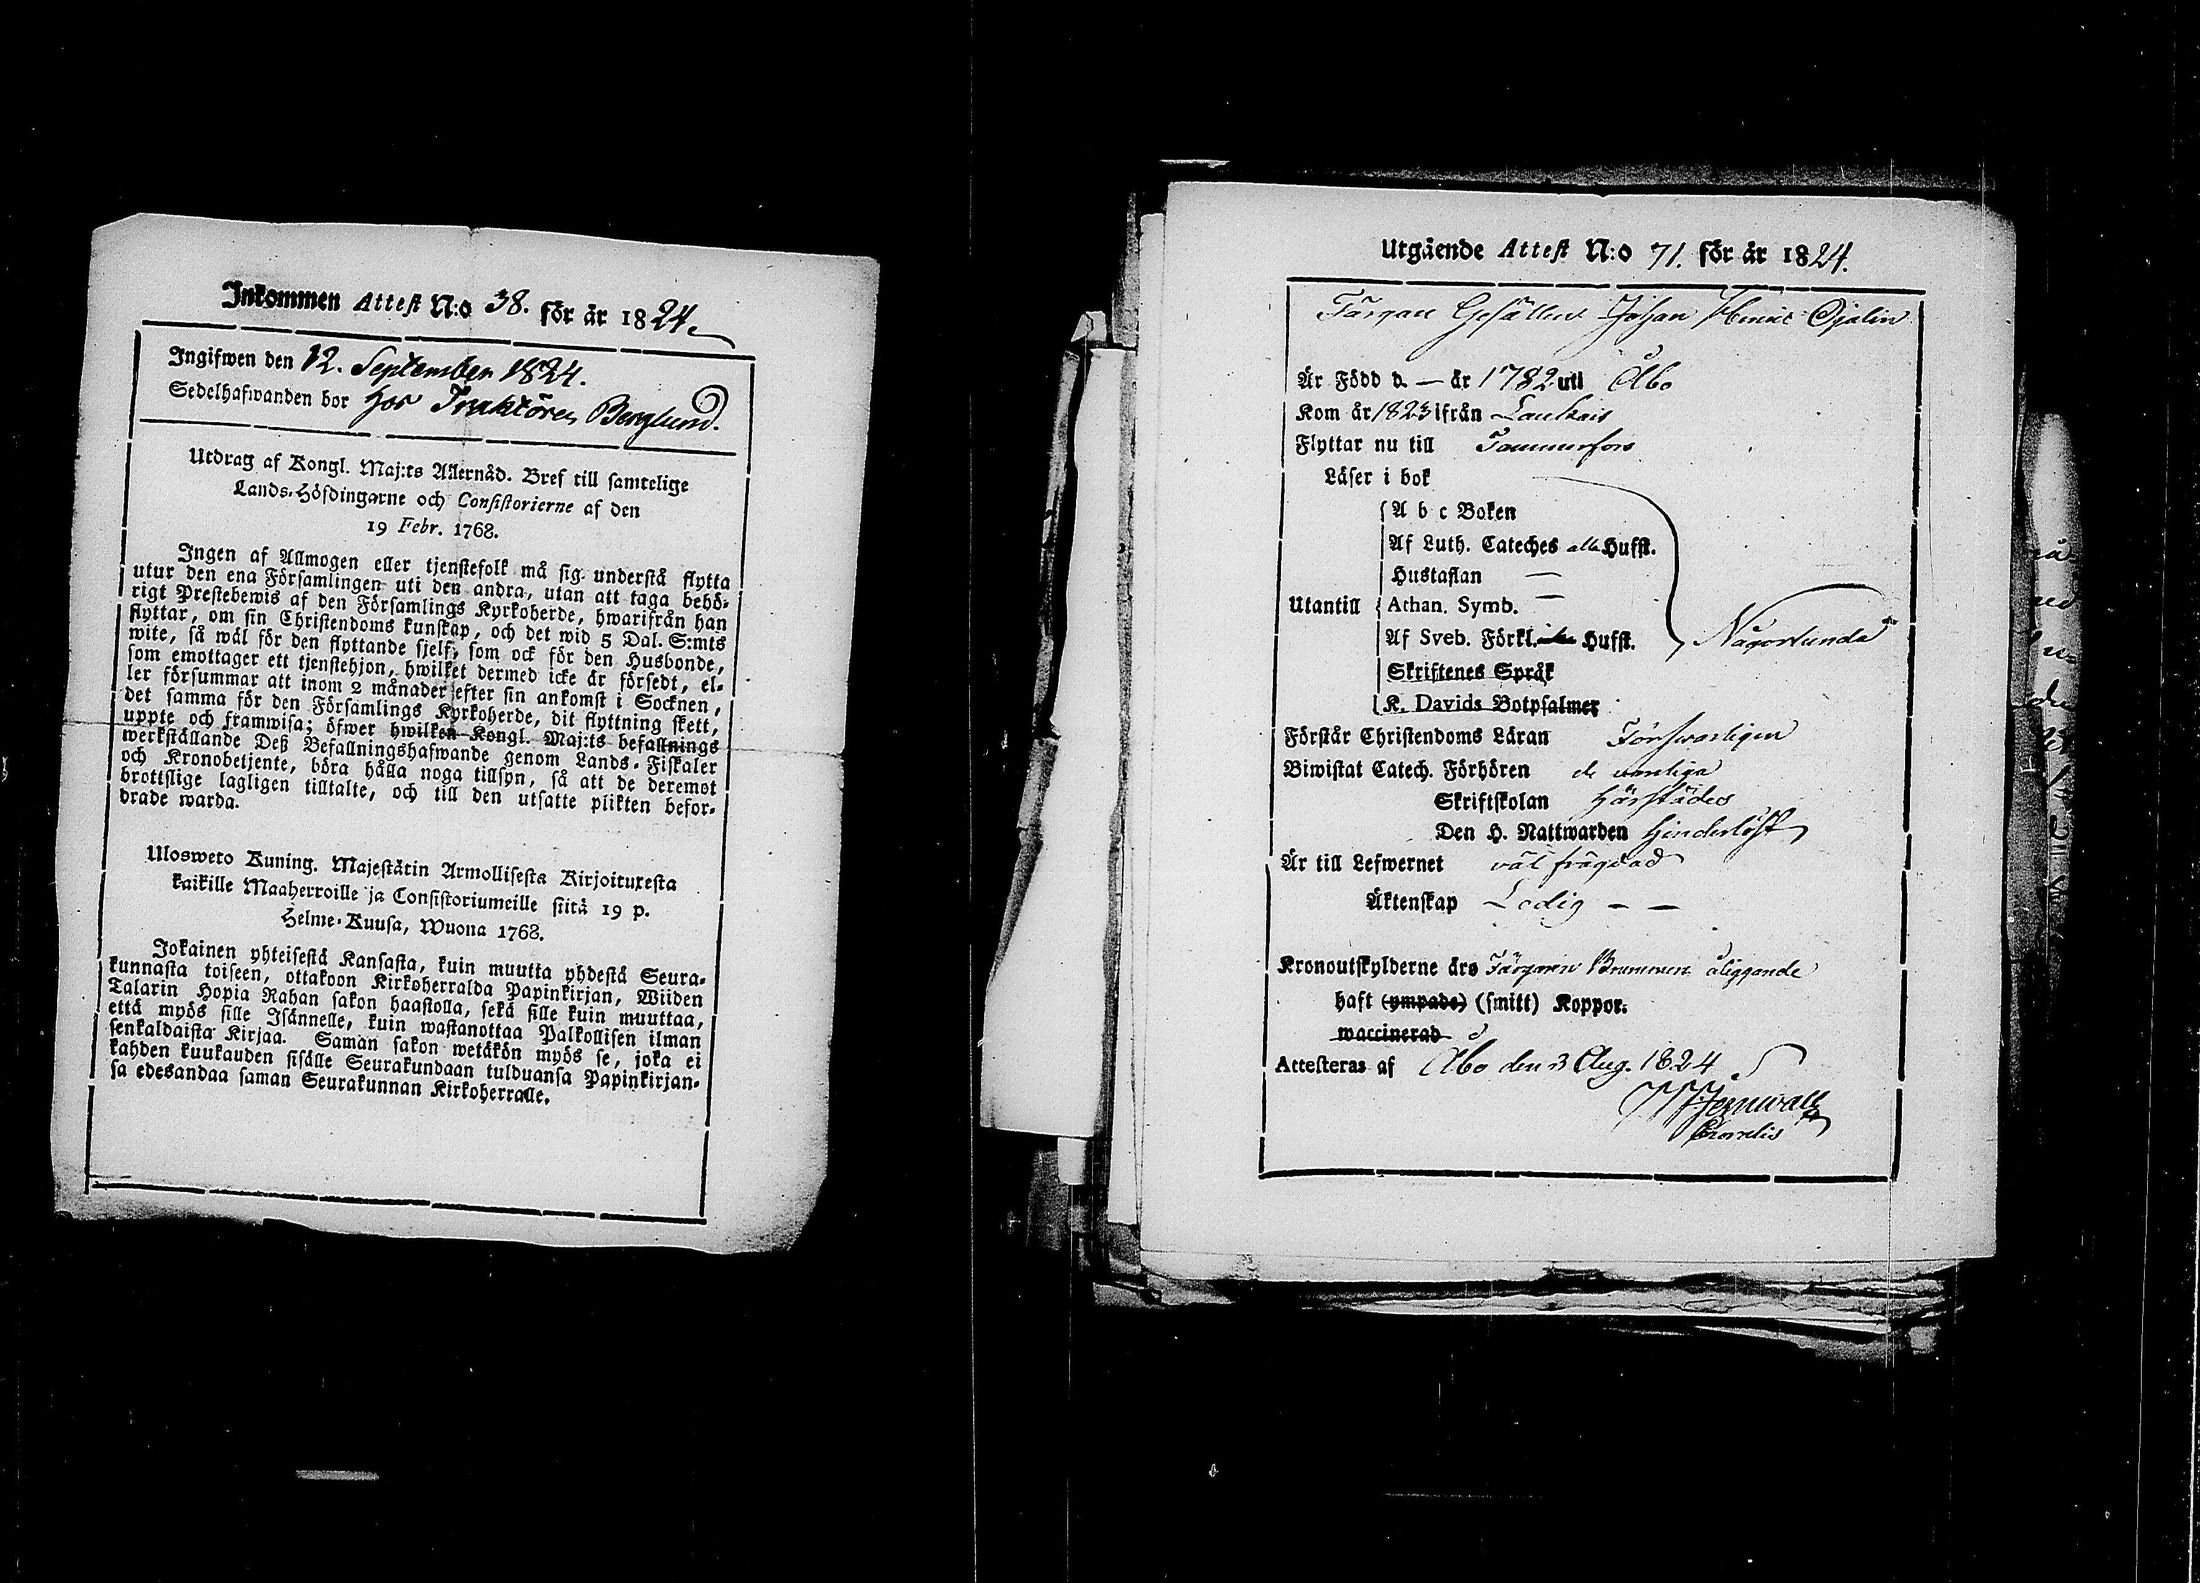 Inkommen Attest N:o 38. för år 1824.
Ingifwen den 12. September 1824.
Sedelhafwanden bor hos Tracktören Berglund.
Utdrag af Kongl. Maj:ts Allernåd. Bref till samtelige
Lands-Höfdingarne och Consistorierne af den
19 Febr. 1768.
Ingen af Allmogen eller tjenstefolk må sig understå flytta
utur den ena Församlingen uti den andra, utan att taga behö-
rigt Prestebewis af den Församlings Kyrkoherde, hwarifrån han
flyttar, om sin Christendoms kunskap, och det wid 5 Dal. S:mts
wite, så wäl för den flyttande sjelf, som ock för den Husbonde,
som emottager ett tjenstehjon, hwilket dermed icke är försedt, el-
ler försummar att inom 2 månader efter sin ankomst i Socknen,
det samma för den Församlings Kyrkoherde, dit flyttning skett,
uppte och framwisa; öfwer hwilken Kongl. Maj:ts befallnings
werkställande Deß Befallningshafwande genom Lands-Fiskaler
och Kronobetjente, böra hålla noga tillsyn, så att de deremot
brottslige lagligen tilltalte, och till den utsatte plikten befor-
drade warda.
Ulosweto Kuning. Majestätin Armollisesta Kirjoituxesta
kaikille Maaherroille ja Consistoriumeille siitä 19 p.
Helme-Kuusa, Wuona 1768.
Jokainen yhteisestä Kansasta, kuin muutta yhdestä Seura-
kunnasta toiseen, ottakoon Kirkoherralda Papinkirjan, Wiiden
Talarin Hopia Rahan sakon haastolla, sekä sille kuin muuttaa,
että myös sille Isännelle, kuin wastanottaa Palkollisen ilman
senkaldaista Kirjaa. Saman sakon wetäkön myös se, joka ei
kahden kuukauden sisälle Seurakundaan tulduansa Papinkirjan-
sa edesandaa saman Seurakunnan Kirkoherralle.
Utgående Attest N:o 71. för år 1824.
Färgare Gesällen Johan Henric Ojalin
Är Född d. — år 1782 uti Åbo
Kom år 1823 ifrån Laukais
Flyttar nu till Tammerfors
Läser i bok
A b c Boken
Af Luth. Cateches alla Hufst.
Hustaflan —
Utantill Athan. Symb. — Någorlunda
Af Sveb. Förkl. Hufst.
Skriftenes Språk
K. Davids Botpsalmer
Förstår Christendoms Läran Försvarligen
Biwistat Catech. Förhören de vanliga
Skriftskolan härstädes
Den H. Nattwarden hinderlöst
Är till Lefwernet väl frägdad
Äktenskap Ledig — —
Kronoutskylderne äro Färgaren Brummers åliggande
haft (ympade) (smitt) Koppor.
waccinerad
Attesteras af Åbo den 3 Aug. 1824